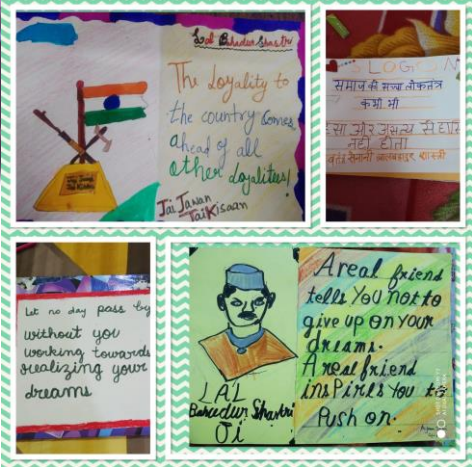 Lal Bahadur Shastri
The Loyality to
the country comes
ahead of all
other Loyalities!
Jai Jawan
Jai Kisaan
SLOGAN
समाज को सच्चा लोकतंत्र
कभी भी
हिंसा और असत्य से हासिल
नहीं होता
लालबहादुर शास्त्री
Let no day pass by
without you
working towards
realizing your
dreams
LAL
Bahedur Shastri
Ji
A real friend
tells You not to
give up on your
dreams.
A real friend
insPires You to
Push on.